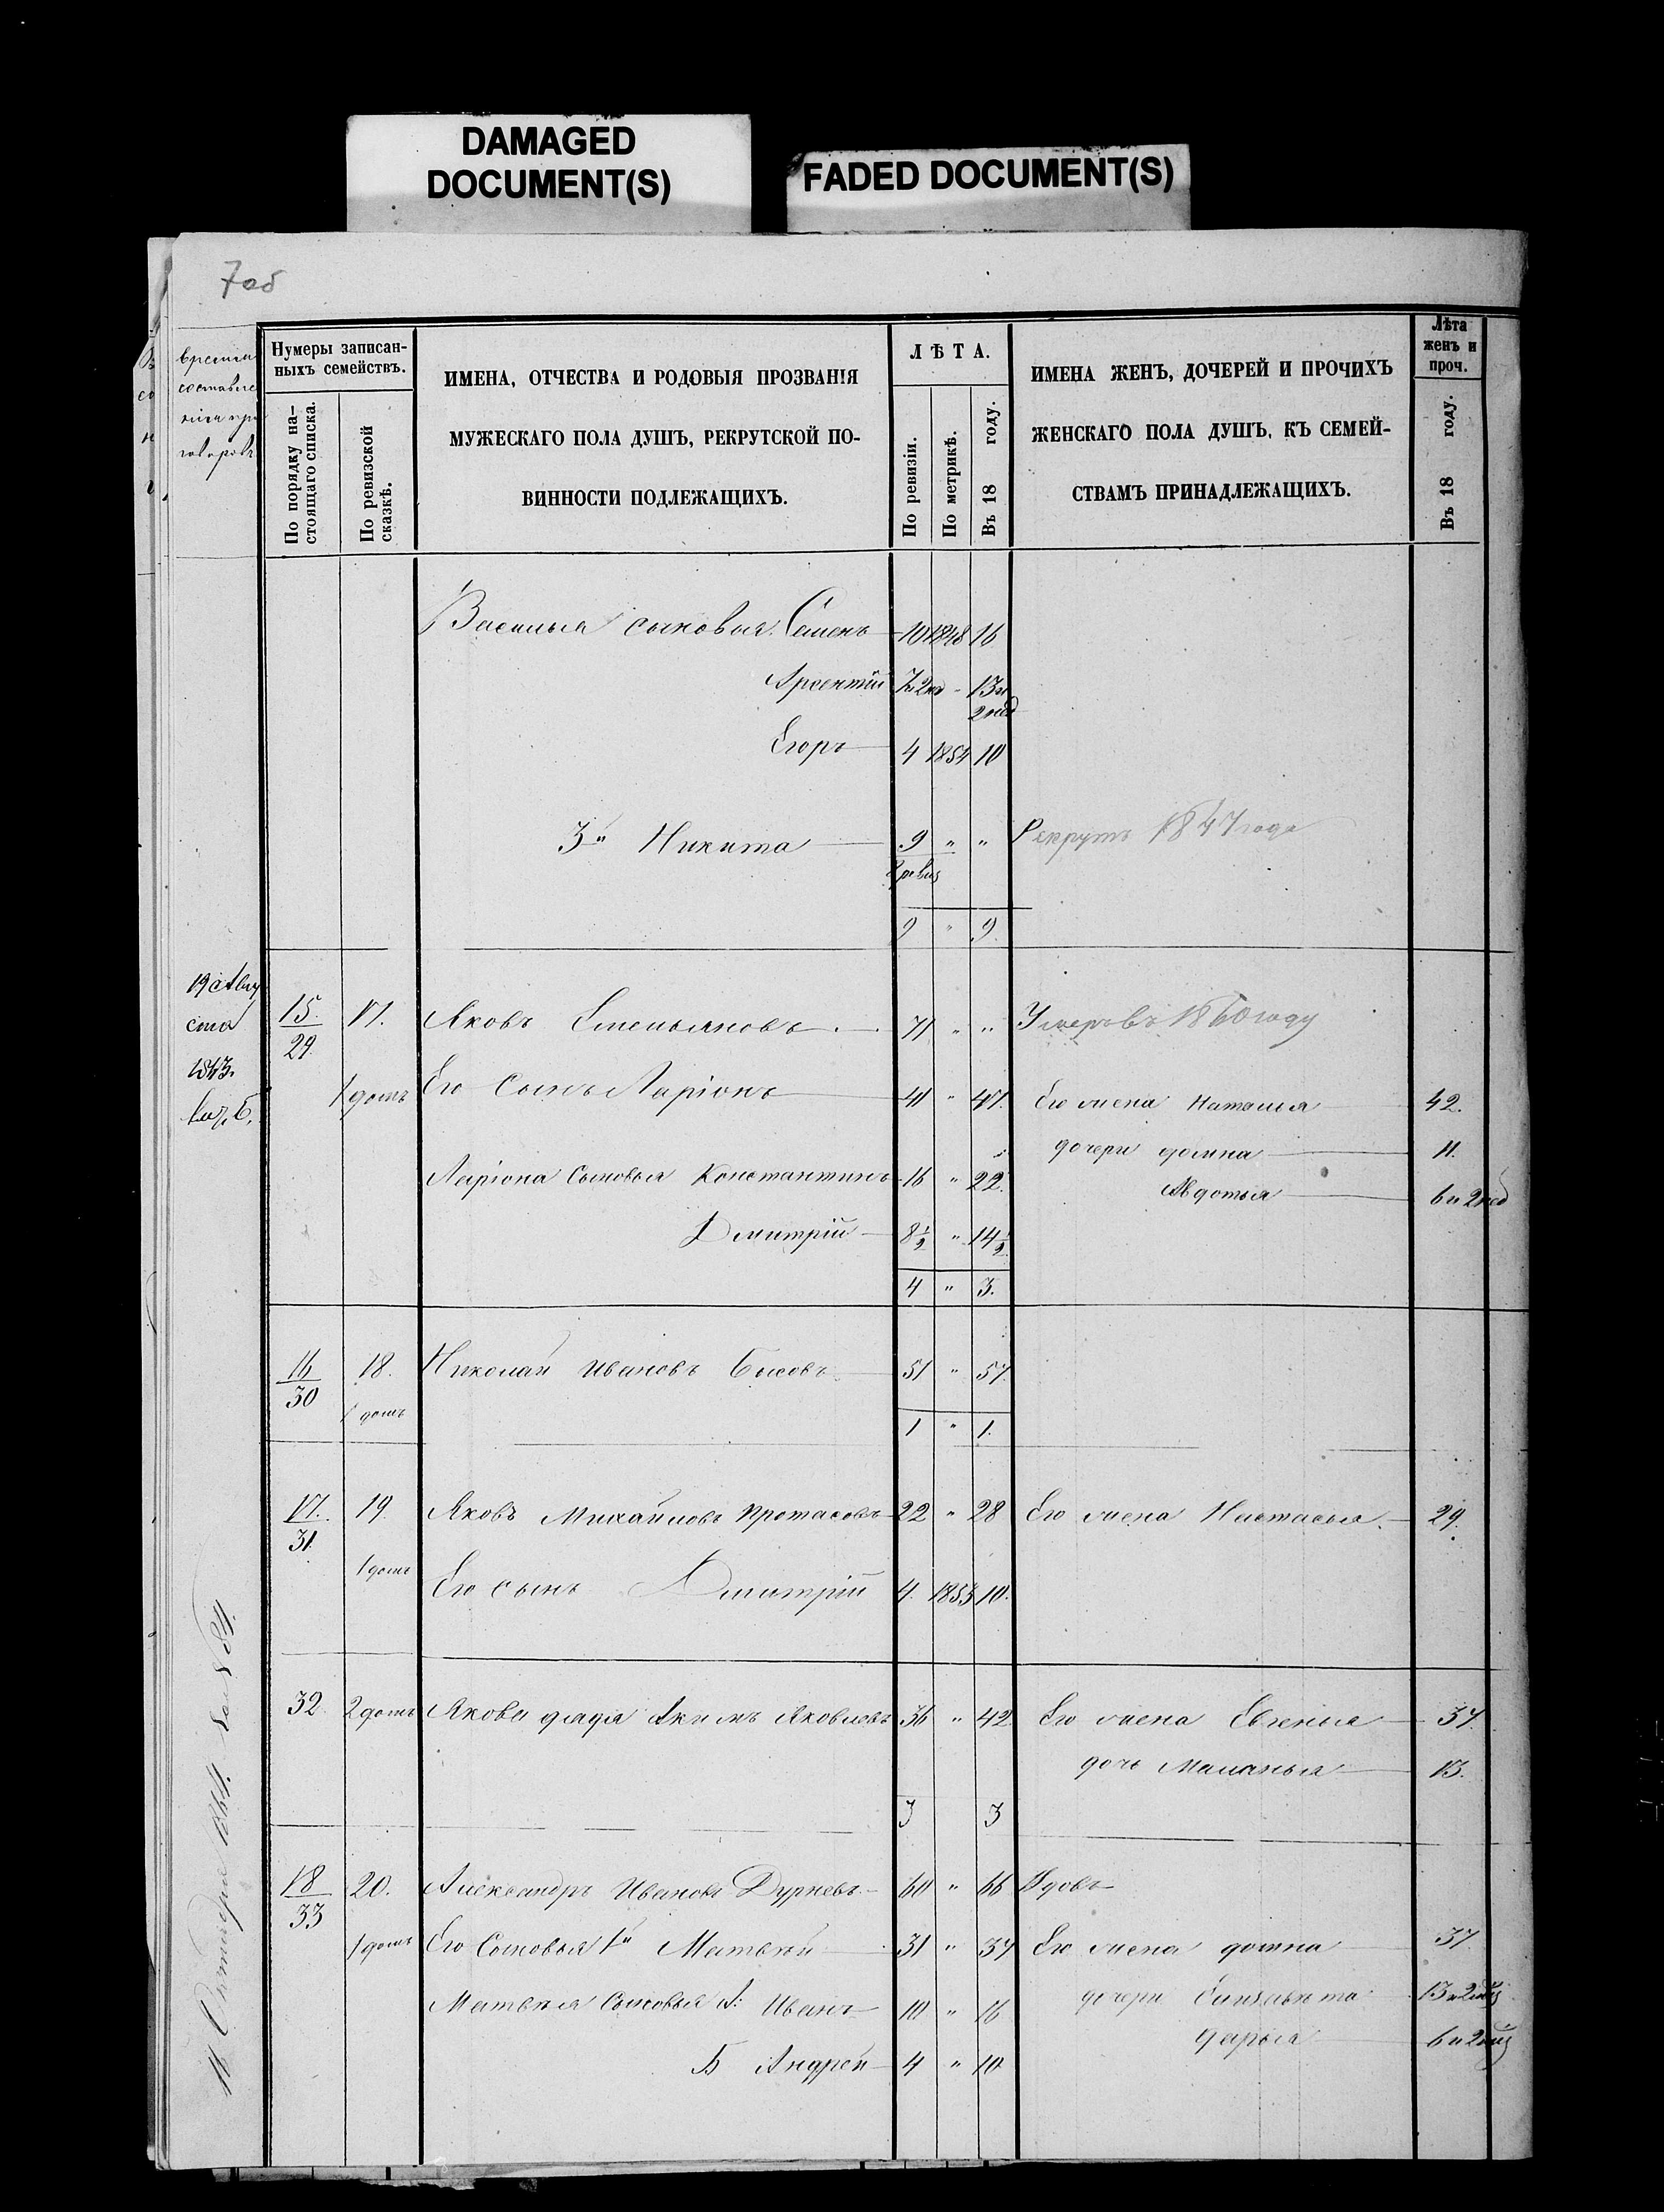 DAMAGED
DOCUMENT(S)
FADED DOCUMENT(S)
7об
Нумеры записан-
ныхъ семействъ.
По порядку на-
стоящаго списка.
По ревизской
сказкѣ.
ИМЕНА, ОТЧЕСТВА И РОДОВЫЯ ПРОЗВАНІЯ
МУЖЕСКАГО ПОЛА ДУШЪ, РЕКРУТСКОЙ ПО-
ВИННОСТИ ПОДЛЕЖАЩИХЪ.
ЛѢТА.
По ревизіи.
По метрикѣ.
Въ 18 году.
ИМЕНА ЖЕНЪ, ДОЧЕРЕЙ И ПРОЧИХЪ
ЖЕНСКАГО ПОЛА ДУШЪ, КЪ СЕМЕЙ-
СТВАМЪ ПРИНАДЛЕЖАЩИХЪ.
Лѣта
женъ и
проч.
Въ 18 году.
Василья сыновья Семенъ 10 1848 16
Арсентій 13 и
2 нед
Егоръ 4 1854 10
3й Никита 9 " " Рекрутъ 1847 года
8 ревиз
9 " 9.
19 Авгу
ста
1843.
15. 17. Яковъ Емельяновъ 71 " " Умеръ въ 1860 году
29.
1 домъ Его Сынъ Ларіонъ 41 " 47. Его жена Наталья 42.
дочери домна 11.
Ларіона Сыновья Константинъ 16 " 22. Авдотья 6 и 2 нед
Дмитрій 8½ " 14½
4 " 3.
16 18. Николай Ивановъ 51 " 57
30
1 домъ
1 " 1.
17. 19. Яковъ Михайловъ Протасовъ 22 " 28 Его жена Настасья 29.
31.
1 домъ Его сынъ Дмитрій 4. 1853 10.
32 2 домъ Якова дядя Акимъ Яковлевъ 36 " 42 Его жена Евгенья 37.
дочь Маланья 13.
3 3
18 20. Александръ Ивановъ Дурневъ 60 " 66 Вдовъ
33
1 домъ Его Сыновья 1й Матвѣй 31 " 37 Его жена домна 37
Матвѣя Сыновья А: Иванъ 10 " 16 дочери Елизавѣта 13 и 2 мѣс
дарья 6 и 2 мѣс
Б Андрей 4 " 10